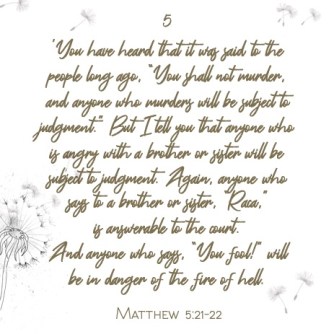 5
"You have heard that it was said to the
people long ago, "You shall not murder,
and anyone who murders will be subject to
judgment." But I tell you that anyone who
is angry with a brother or sister will be
subject to judgment. Again, anyone who
says to a brother or sister, "Raca,"
is answerable to the court.
And anyone who says, "You fool!" will
be in danger of the fire of hell.
Matthew 5:21-22